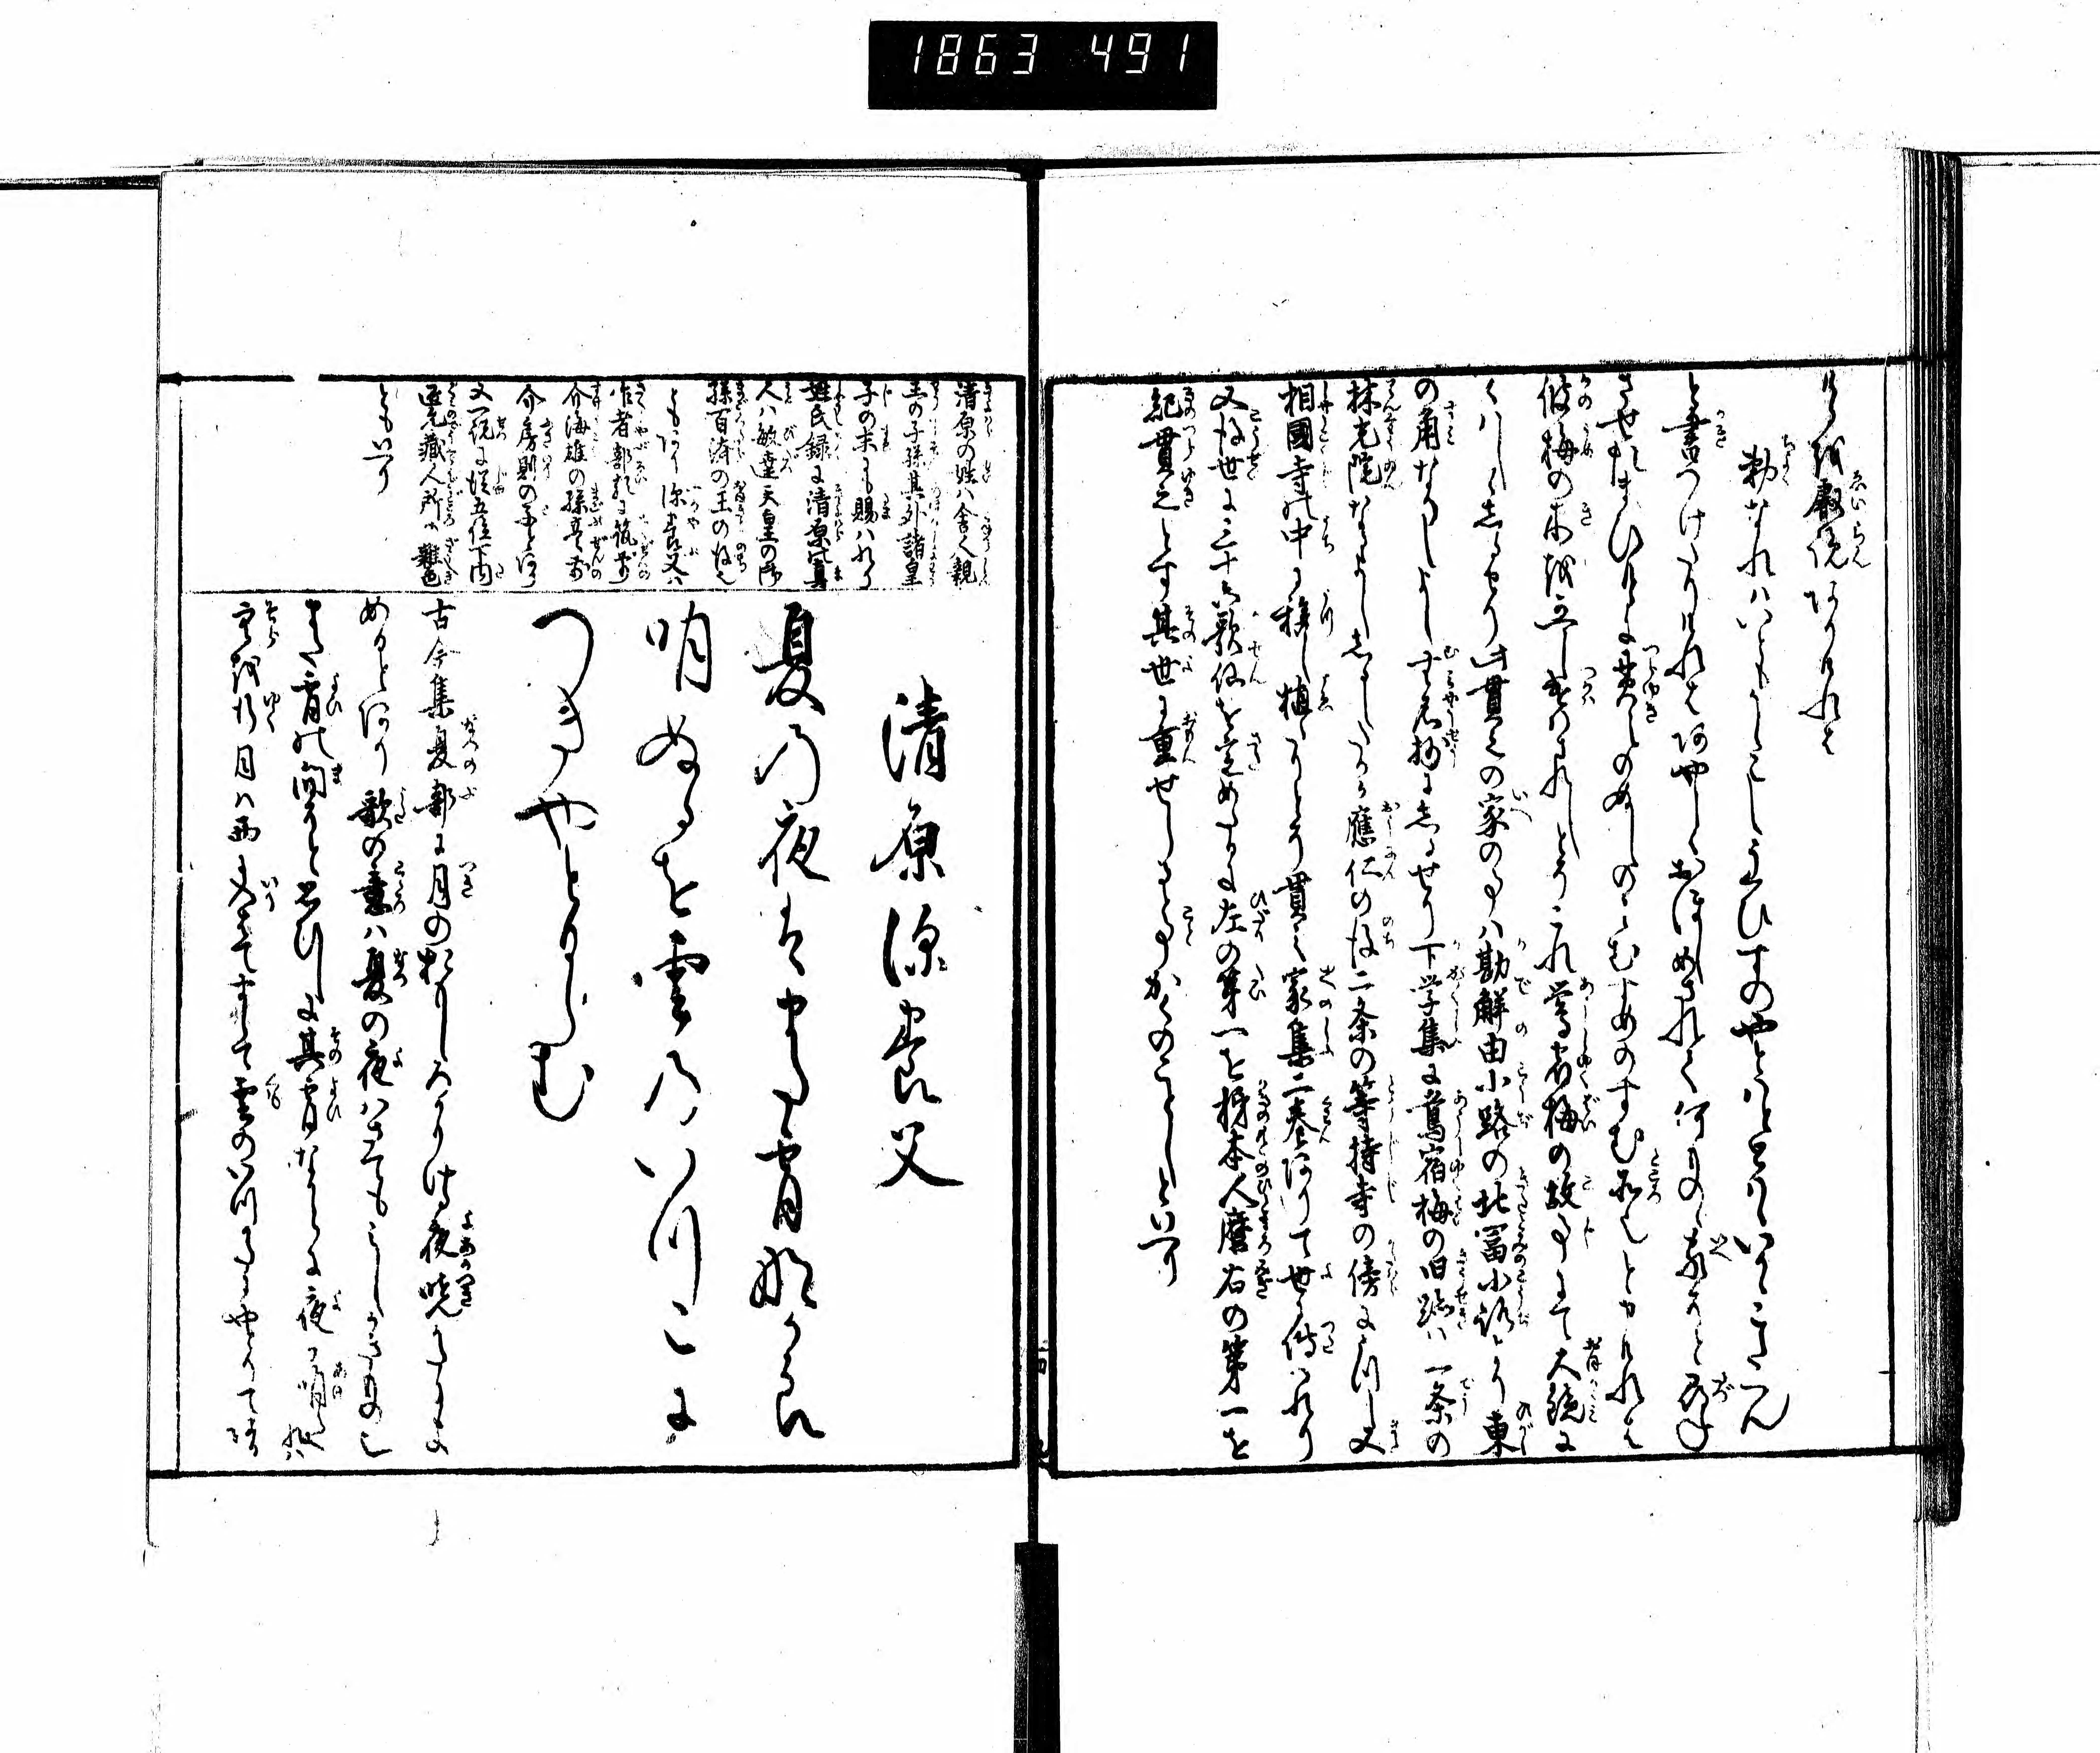 1863 491
けるを叡覧ありけれは
勅なれはいともかしこしうひすのやとはとととはいかゝこたへん
と書つけたりけれはあやしくおほしめされて何ものゝ家そと尋
させたまひけるに貫之のぬしのみむすめのすむ所なりとありけれは
彼梅の木を
鶯宿梅の故事にて大鏡に
くはしくしるせり此貫之の家の事ハ勘解由小路の北冨小路より東
の角なるよし
しるせり下学集に鴬宿梅の旧跡ハ一条の
林光院なるよししるしたるか應仁の後二条の等持寺の傍にうつし又
相國寺の中に移し植しとそ貫之家集二巻ありて世に傳はれり
又後世に三十六歌仙を定めしに左の第一を柿本人麿右の第一を
紀貫之とす其世に重せしる事かくのことしといへり
清原の姓ハ舎人親
王の子孫其外諸皇
子の末にも賜ハれり
姓氏録に清原真
人ハ敏達天皇の御
孫百済の王の後也
ともあり深養父ハ
作者部類に筑前
介海雄の孫豊前
介房則の子とあり
又一説に従五位下内
匠允蔵人所の雑色
ともいへり
清原深養父
夏の夜はまた宵なから
明ぬるを雲のいつこに
つきやとるらむ
古今集夏部に月の おもしろかりける夜暁かたによ
めるとあり歌の意ハ夏の夜ハさてもみしかきものし
また宵の間そと思ひしに其宵なからに夜か明た
空を行月は西 雲のいつくにやとりて